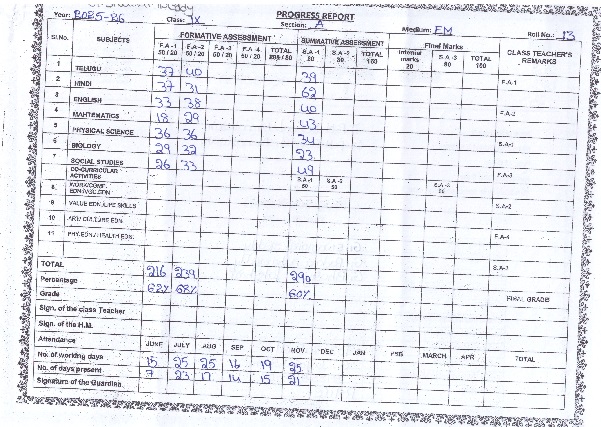 PROGRESS REPORT
Year: 2025-26 Class: IX Section: A Medium: EM Roll No.: 13
Sl.No. SUBJECTS FORMATIVE ASSESSMENT SUMMATIVE ASSESSMENT Final Marks CLASS TEACHER'S REMARKS
F.A-1 50/20 F.A-2 50/20 F.A-3 50/20 F.A-4 50/20 TOTAL 200/80 S.A-1 80 S.A-2 80 TOTAL 160 Internal marks 20 S.A-3 80 TOTAL 100
1 TELUGU 37 40 39 F.A-1
2 HINDI 37 31 62
3 ENGLISH 33 38 40 F.A-2
4 MATHEMATICS 18 29 43
5 PHYSICAL SCIENCE 36 36 34 S.A-1
6 BIOLOGY 29 32 23
7 SOCIAL STUDIES 26 33 49 F.A-3
CO-CURRICULAR ACTIVITIES S.A-1 50 S.A-2 50 S.A-3 50
8 WORK/COMP. EDN
9 VALUE EDN./LIFE SKILLS S.A-2
10 ART/CULTURE EDN.
11 PHY.EDN./HEALTH EDN. F.A-4
TOTAL 216 239 290 S.A-3
Percentage 62% 68% 60%
Grade FINAL GRADE
Sign. of the class Teacher
Sign. of the H.M.
Attendance JUNE JULY AUG SEP OCT NOV DEC JAN FEB MARCH APR TOTAL
No. of working days 15 25 25 16 19 25
No. of days present 7 23 17 14 15 21
Signature of the Guardian